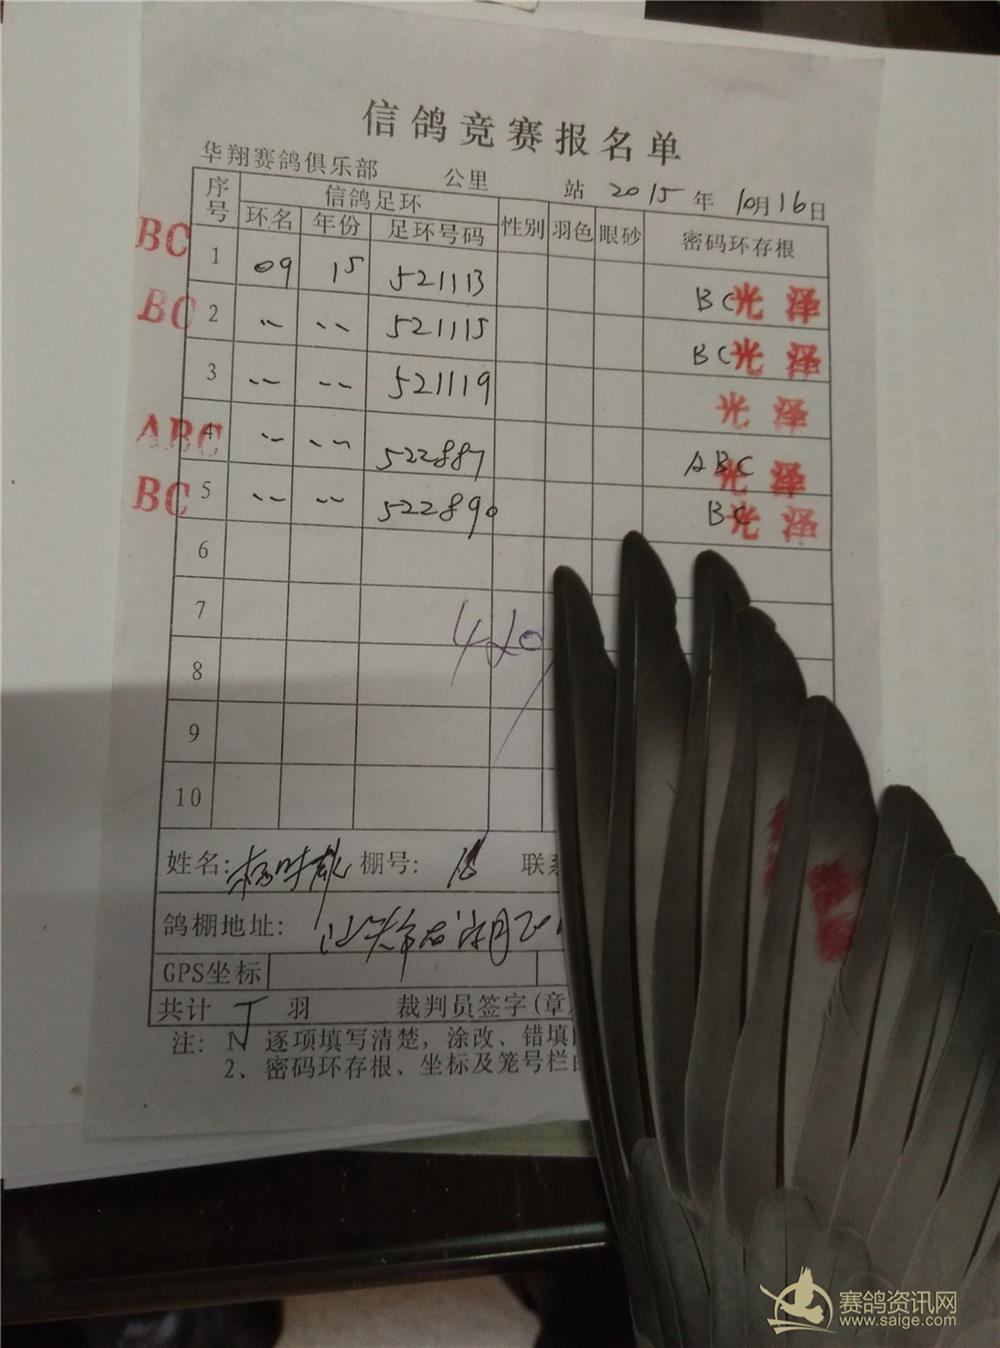 信鸽竞赛报名单
华翔赛鸽俱乐部 公里 站 2015年 10月16日
序号 信鸽足环 性别 羽色 眼砂 密码环存根
环名 年份 足环号码
BC 1 09 15 521113 BC 光泽
BC 2 〃 〃 521115 BC 光泽
3 〃 〃 521119 光泽
ABC 4 〃 〃 522887 ABC 光泽
BC 5 〃 〃 522890 BC 光泽
6
7
8
9
10
姓名: 棚号: 联系
鸽棚地址:
GPS坐标
共计 羽 裁判员签字(章
注: 1、逐项填写清楚，涂改、错填
2、密码环存根、坐标及笼号栏
赛鸽资讯网
www.saige.com